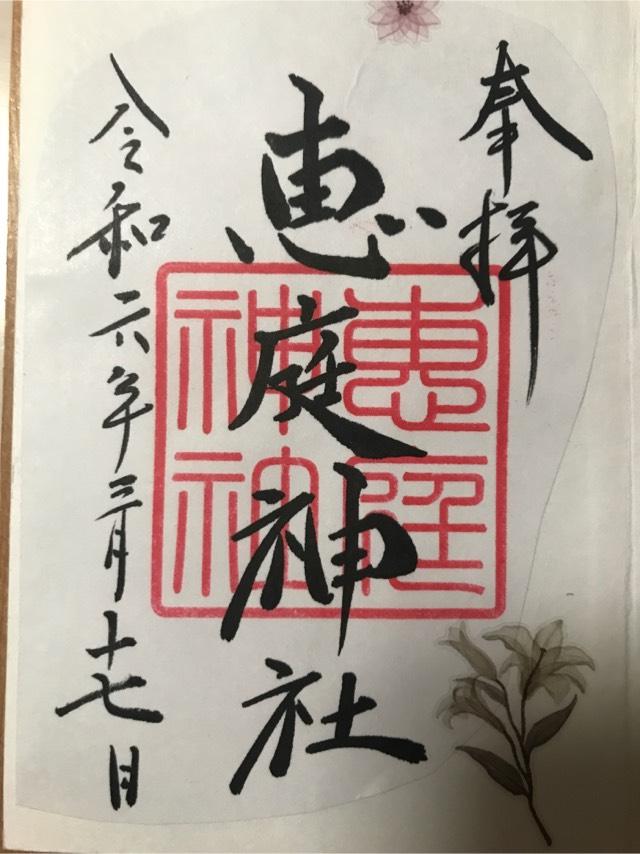 奉拝
恵庭神社
恵庭神社
令和六年三月十七日